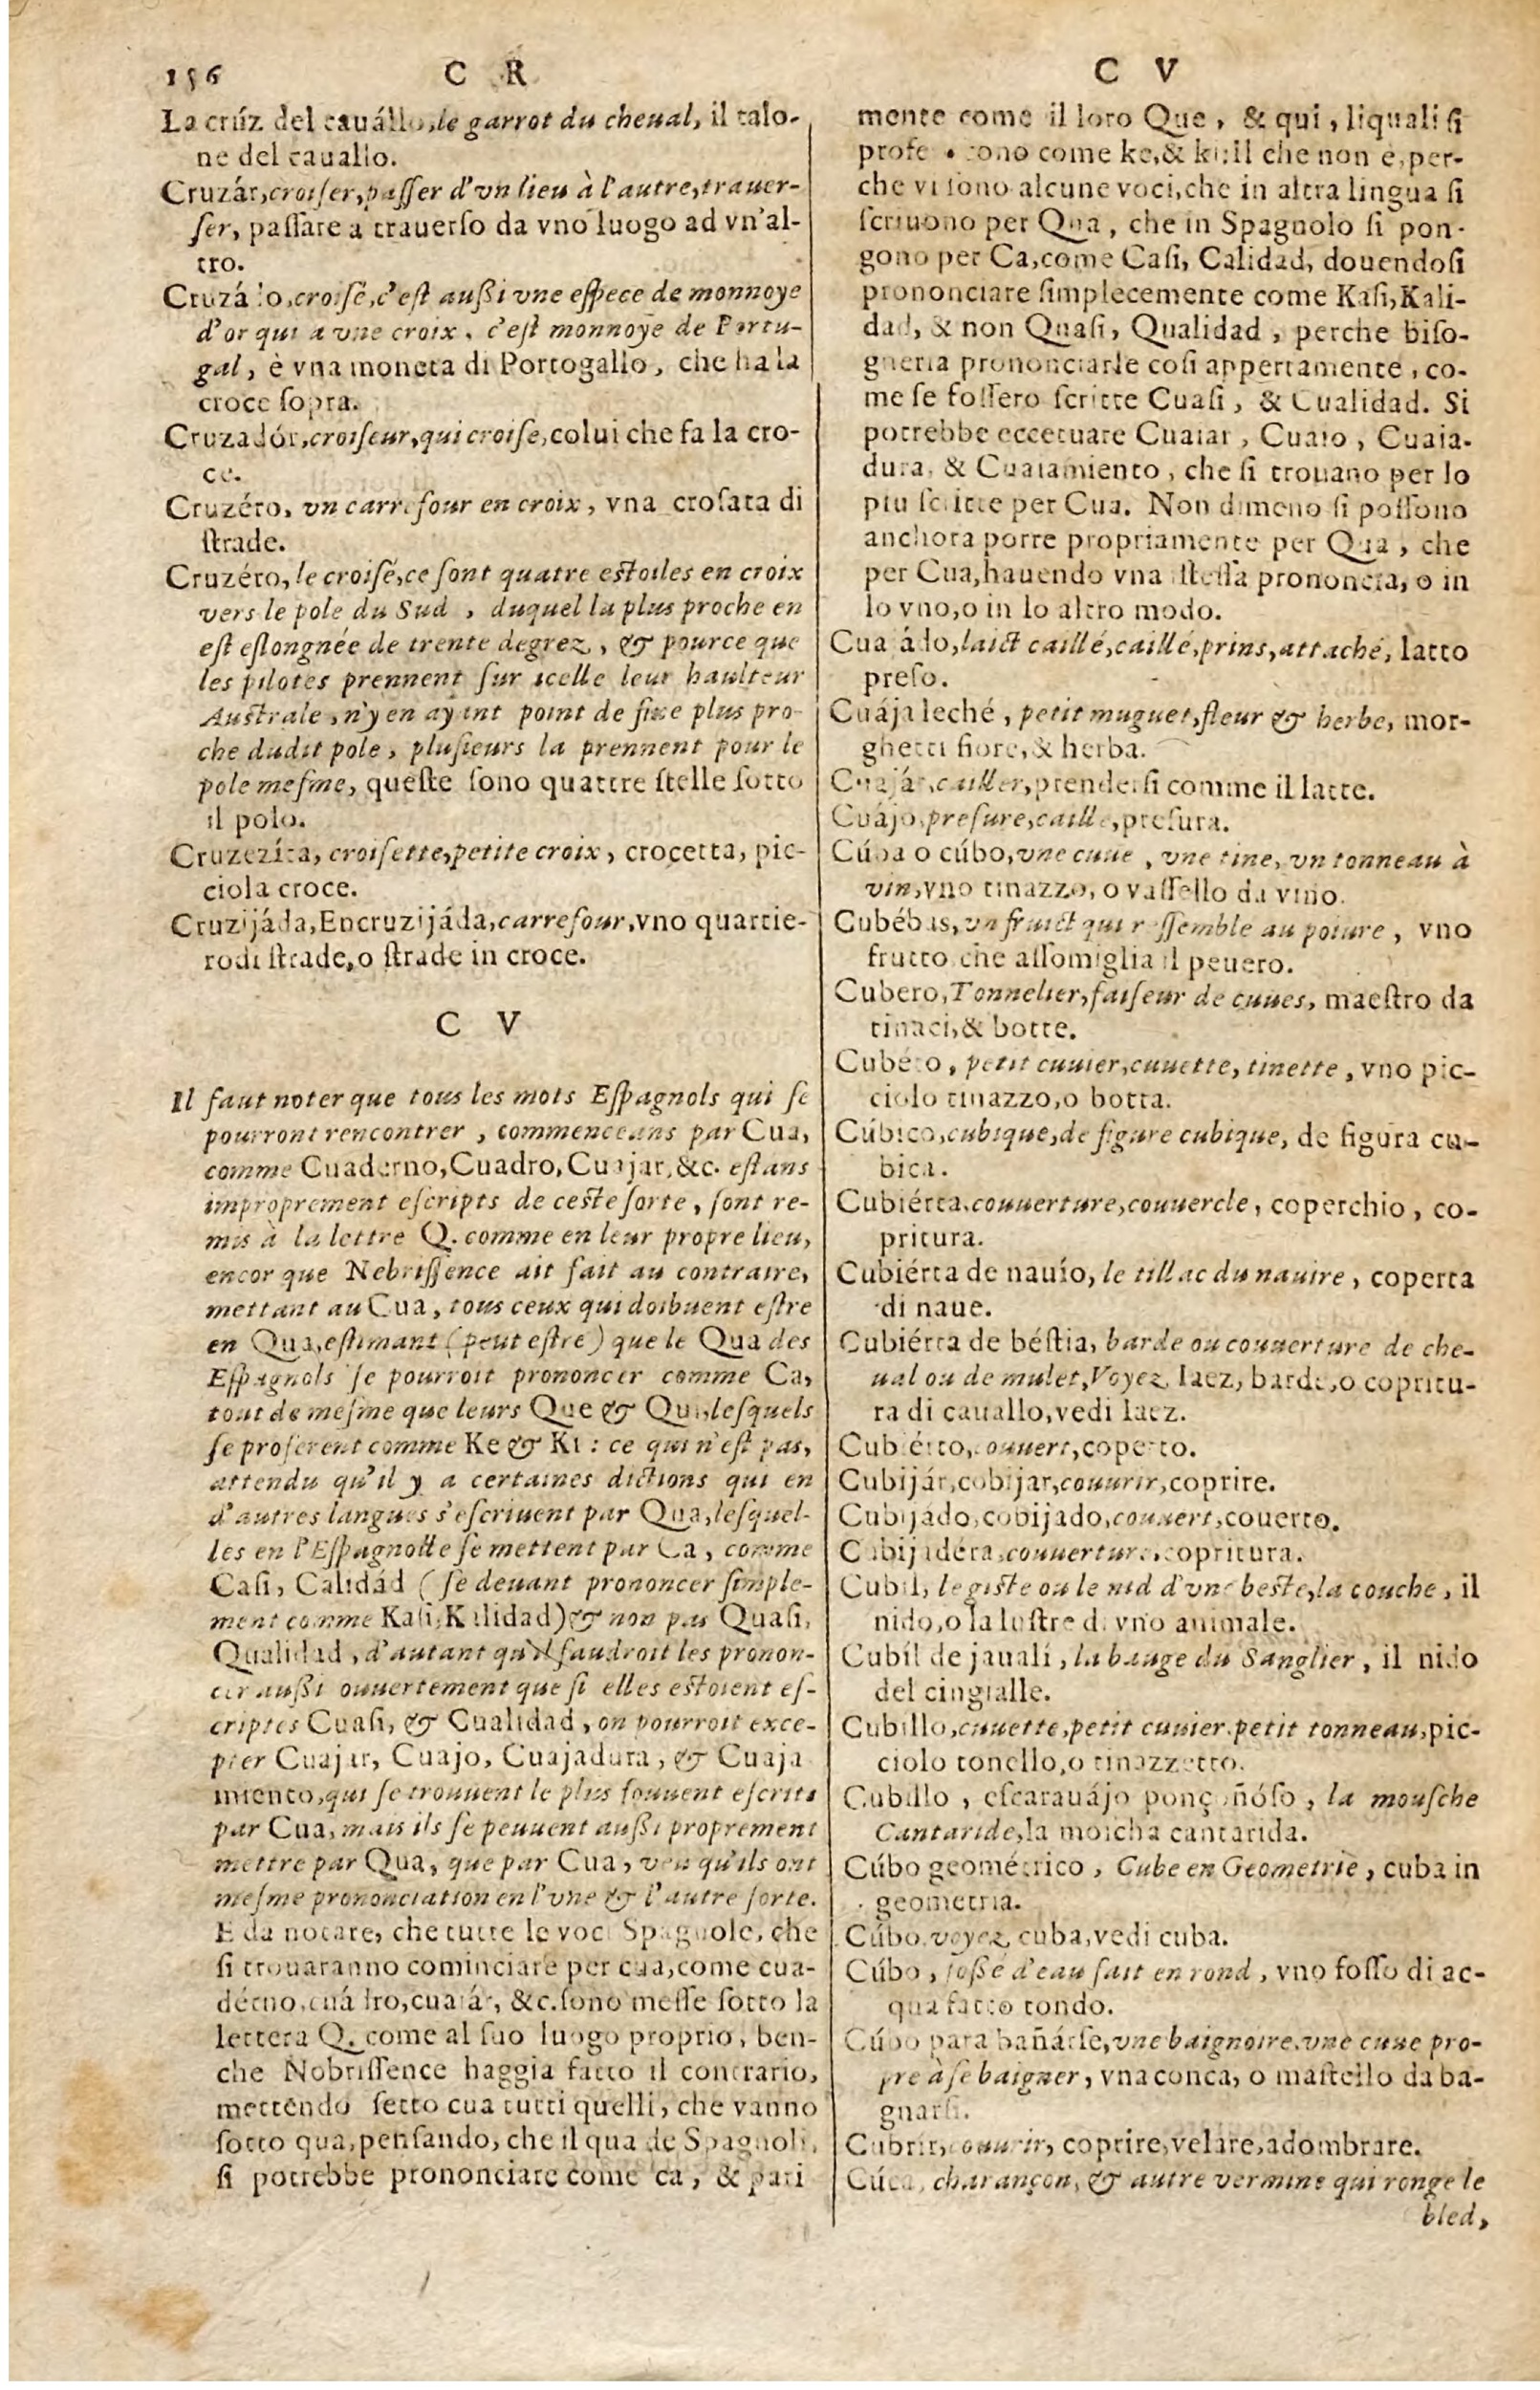 156
C R
La crúz del cauállo, le garrot du cheual, il talo-
ne del cauallo.
Cruzár, croiser, passer d'vn lieu à l'autre, trauer-
ser, passare a trauerso da vno luogo ad vn'al-
tro.
croisé, c'est aussi vne espece de monnoye
d'or qui a vne croix, c'est monnoye de Portu-
gal, è vna moneta di Portogallo, che ha la
croce sopra.
Cruzadór, croiseur, qui croise, colui che fa la cro-
ce.
Cruzéro, vn carrefour en croix, vna crosata di
strade.
Cruzéro, le croisé, ce sont quatre estoiles en croix
vers le pole du Sud, duquel la plus proche en
est eslongnée de trente degrez, & pource que
les pilotes prennent sur icelle leur haulteur
Australe, n'y en ayant point de fixe plus pro-
che dudit pole, plusieurs la prennent pour le
pole mesme, queste sono quattre stelle sotto
il polo.
Cruzezíta, croisette, petite croix, crocetta, pic-
ciola croce.
Cruzijáda, Encruzijáda, carrefour, vno quartie-
rodi strade, o strade in croce.
C V
Il faut noter que tous les mots Espagnols qui se
pourront rencontrer, commenceans par Cua,
comme Cuaderno, Cuadro, Cuajar, &c. estans
improprement escripts de ceste sorte, sont re-
mis à la lettre Q. comme en leur propre lieu,
encor que Nebrissence ait fait au contraire,
mettant au Cua, tous ceux qui doibuent estre
en Qua, estimant (peut estre) que le Qua des
Espagnols se pourroit prononcer comme Ca,
tout de mesme que leurs Que & Qui, lesquels
se proferent comme Ke & Ki : ce qui n'est pas,
attendu qu'il y a certaines dictions qui en
d'autres langues s'escriuent par Qua, lesquel-
les en l'Espagnolle se mettent par Ca, comme
Casi, Calidád (se deuant prononcer simple-
ment comme Kasi, Kalidad) & non pas Quasi,
Qualidad, d'autant qu'il faudroit les pronon-
cer aussi ouuertement que si elles estoient es-
criptes Cuasi, & Cualidad, on pourroit exce-
pter Cuajar, Cuajo, Cuajadura, & Cuaja
miento, qui se trouuent le plus souuent escrits
par Cua, mais ils se peuuent aussi proprement
mettre par Qua, que par Cua, veu qu'ils ont
mesme prononciation en l'vne & l'autre sorte.
E da notare, che tutte le voci Spagnole, che
si trouaranno cominciare per cua, come cua-
dérno, cuádro, cuaiár, &c. sono messe sotto la
lettera Q. come al suo luogo proprio, ben-
che Nobrissence haggia fatto il contrario,
mettēndo setto cua tutti quelli, che vanno
sotto qua, pensando, che il qua de Spagnoli,
si potrebbe prononciare come ca, & pari
C V
mente come il loro Que, & qui, liquali si
cono come ke, & ki: Il che non è, per-
che vi sono alcune voci, che in altra lingua si
scriuono per Qua, che in Spagnolo si pon-
gono per Ca, come Casi, Calidad, douendosi
prononciare simplecemente come Kasi, Kali-
dad, & non Quasi, Qualidad, perche biso-
gneria prononciarle cosi appertamente, co-
me se fossero scritte Cuasi, & Cualidad. Si
potrebbe eccetuare Cuaiar, Cuaio, Cuaia-
dura, & Cuaiamiento, che si trouano per lo
piu scritte per Cua. Non dimeno si possono
anchora porre propriamente per Qua, che
per Cua, hauendo vna stessa prononcia, o in
lo vno, o in lo altro modo.
laict caillé, caillé, prins, attaché, latto
preso.
Cuája leché, petit muguet, fleur & herbe, mor-
ghetti fiore, & herba.
Cuajár, cailler, prendersi comme il latte.
Cuájo, presure, caille, presura.
Cúba o cúbo, vne cuue, vne tine, vn tonneau à
vin, vno tinazzo, o vassello da vino.
Cubébas, vn fruict qui ressemble au poiure, vno
frutto che assomiglia il peuero.
Cubero, Tonnelier, faiseur de cuues, maestro da
tinaci, & botte.
Cubéto, petit cuuier, cuuette, tinette, vno pic-
ciolo tinazzo, o botta.
Cúbico, cubique, de figure cubique, de figura cu-
bica.
Cubiérta, couuerture, couuercle, coperchio, co-
pritura.
Cubiérta de nauío, le tillac du nauire, coperta
di naue.
Cubiérta de béstia, barde ou couuerture de che-
ual ou de mulet, Voyez Iaez, barde, o copritu-
ra di cauallo, vedi Iaez.
Cubiérto, couuert, coperto.
Cubijár, cobijar, couurir, coprire.
Cubijádo, cobijado, couuert, couerto.
Cubijadéra, couuerture, copritura.
Cubil, le giste ou le nid d'vne beste, la couche, il
nido, o la lustre di vno animale.
Cubíl de jauali, la bauge du Sanglier, il nido
del cingialle.
Cubillo, cuuette, petit cuuier, petit tonneau, pic-
ciolo tonello, o tinazzetto.
Cubillo, escarauájo ponçoñóso, la mousche
Cantaride, la moscha cantarida.
Cúbo geométrico, Cube en Geometrie, cuba in
geometria.
Cúbo, voyez cuba, vedi cuba.
Cúbo, fossé d'eau fait en rond, vno fosso di ac-
qua fatto tondo.
Cúbo para bañárse, vne baignoire, vne cuue pro-
pre à se baigner, vna conca, o mastello da ba-
gnarsi.
Cubrir, couurir, coprire, velare, adombrare.
Cúca, charançon, & autre vermine qui ronge le
bled,